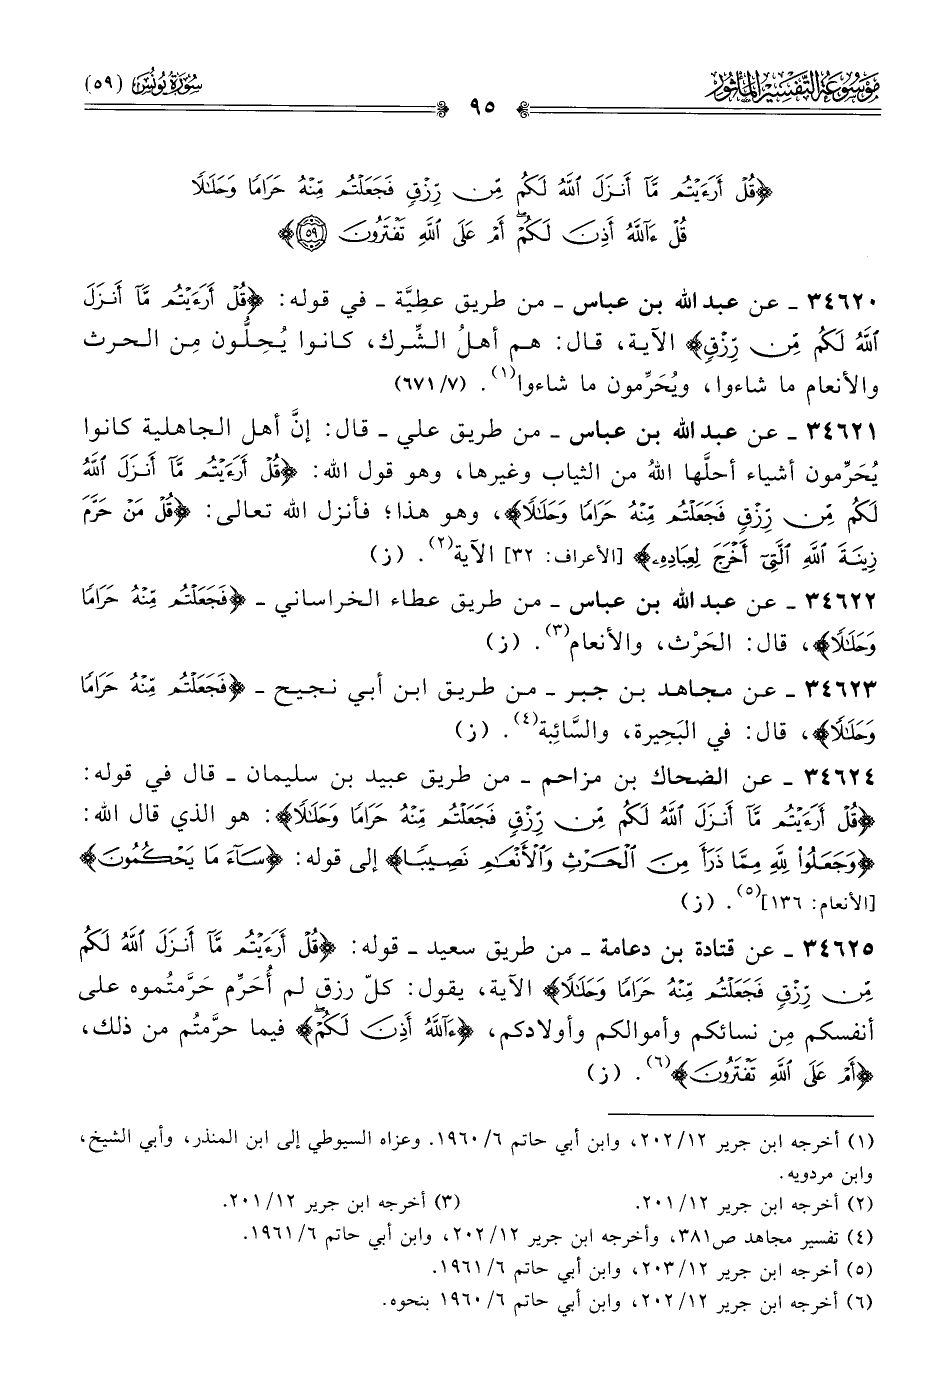 موسوعة التفسير المأثور
سورة يونس (٥٩)
٩٥
﴿قُلْ أَرَءَيْتُم مَّآ أَنزَلَ ٱللَّهُ لَكُم مِّن رِّزْقٍ فَجَعَلْتُم مِّنْهُ حَرَامًا وَحَلَٰلًا
قُلْ ءَآللَّهُ أَذِنَ لَكُمْ ۖ أَمْ عَلَى ٱللَّهِ تَفْتَرُونَ ۝٥٩﴾
٣٤٦٢٠ ـ عن عبد الله بن عباس ـ من طريق عطِيَّة ـ في قوله: ﴿قُلْ أَرَءَيْتُم مَّآ أَنزَلَ
ٱللَّهُ لَكُم مِّن رِّزْقٍ﴾ الآية، قال: هم أهلُ الشِّرك، كانوا يُحِلُّون مِن الحرث
والأنعام ما شاءوا، ويُحَرِّمون ما شاءوا(١). (٦٧١/٧)
٣٤٦٢١ ـ عن عبد الله بن عباس ـ من طريق علي ـ قال: إنَّ أهل الجاهلية كانوا
يُحَرِّمون أشياء أحلَّها اللهُ من الثياب وغيرها، وهو قول الله: ﴿قُلْ أَرَءَيْتُم مَّآ أَنزَلَ ٱللَّهُ
لَكُم مِّن رِّزْقٍ فَجَعَلْتُم مِّنْهُ حَرَامًا وَحَلَٰلًا﴾، وهو هذا؛ فأنزل الله تعالى: ﴿قُلْ مَنْ حَرَّمَ
زِينَةَ ٱللَّهِ ٱلَّتِىٓ أَخْرَجَ لِعِبَادِهِۦ﴾ [الأعراف: ٣٢] الآية(٢). (ز)
٣٤٦٢٢ ـ عن عبد الله بن عباس ـ من طريق عطاء الخراساني ـ ﴿فَجَعَلْتُم مِّنْهُ حَرَامًا
وَحَلَٰلًا﴾، قال: الحَرْث، والأنعام(٣). (ز)
٣٤٦٢٣ ـ عن مجاهد بن جبر ـ من طريق ابن أبي نجيح ـ ﴿فَجَعَلْتُم مِّنْهُ حَرَامًا
وَحَلَٰلًا﴾، قال: في البَحِيرة، والسَّائِبة(٤). (ز)
٣٤٦٢٤ ـ عن الضحاك بن مزاحم ـ من طريق عبيد بن سليمان ـ قال في قوله:
﴿قُلْ أَرَءَيْتُم مَّآ أَنزَلَ ٱللَّهُ لَكُم مِّن رِّزْقٍ فَجَعَلْتُم مِّنْهُ حَرَامًا وَحَلَٰلًا﴾: هو الذي قال الله:
﴿وَجَعَلُوا۟ لِلَّهِ مِمَّا ذَرَأَ مِنَ ٱلْحَرْثِ وَٱلْأَنْعَٰمِ نَصِيبًا﴾ إلى قوله: ﴿سَآءَ مَا يَحْكُمُونَ﴾
[الأنعام: ١٣٦](٥). (ز)
٣٤٦٢٥ ـ عن قتادة بن دعامة ـ من طريق سعيد ـ قوله: ﴿قُلْ أَرَءَيْتُم مَّآ أَنزَلَ ٱللَّهُ لَكُم
مِّن رِّزْقٍ فَجَعَلْتُم مِّنْهُ حَرَامًا وَحَلَٰلًا﴾ الآية، يقول: كلّ رزق لم أُحَرِّم حَرَّمتُموه على
أنفسكم مِن نسائكم وأموالكم وأولادكم، ﴿ءَآللَّهُ أَذِنَ لَكُمْ ۖ﴾ فيما حرَّمتُم من ذلك،
﴿أَمْ عَلَى ٱللَّهِ تَفْتَرُونَ﴾(٦). (ز)
(١) أخرجه ابن جرير ٢٠٢/١٢، وابن أبي حاتم ١٩٦٠/٦. وعزاه السيوطي إلى ابن المنذر، وأبي الشيخ،
وابن مردويه.
(٢) أخرجه ابن جرير ٢٠١/١٢. (٣) أخرجه ابن جرير ٢٠١/١٢.
(٤) تفسير مجاهد ص٣٨١، وأخرجه ابن جرير ٢٠٢/١٢، وابن أبي حاتم ١٩٦١/٦.
(٥) أخرجه ابن جرير ٢٠٣/١٢، وابن أبي حاتم ١٩٦١/٦.
(٦) أخرجه ابن جرير ٢٠٢/١٢، وابن أبي حاتم ١٩٦٠/٦ بنحوه.